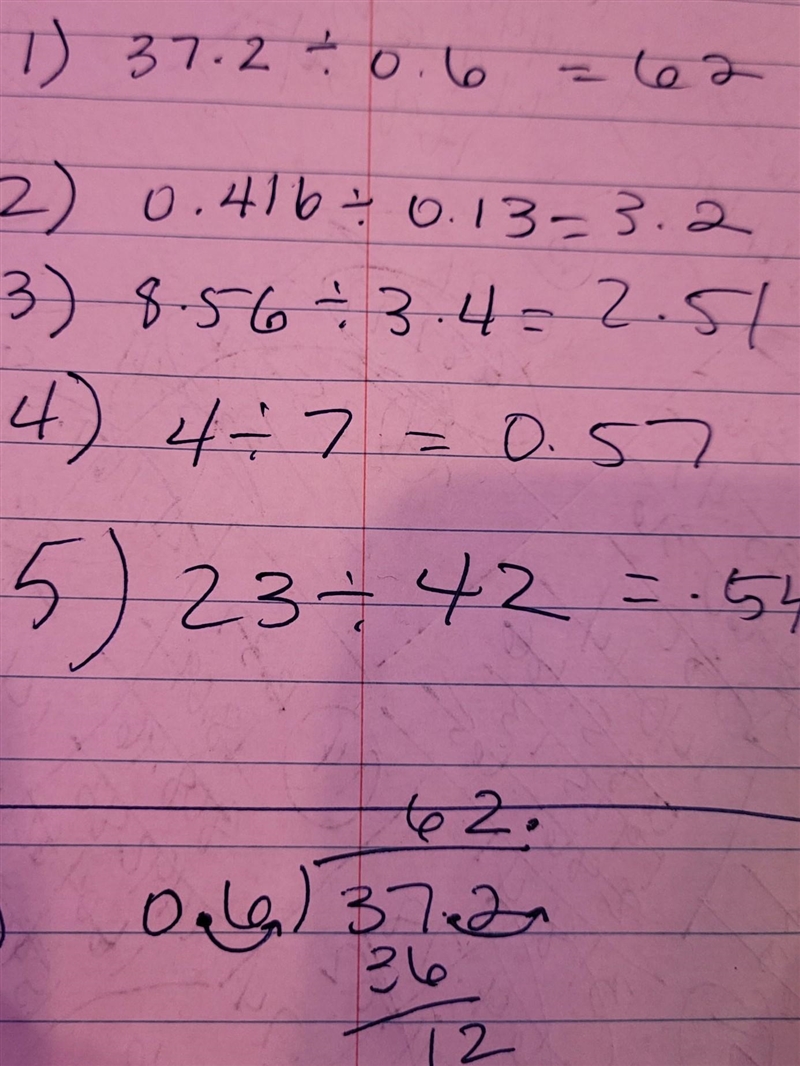 1) 37.2 ÷ 0.6 = 62
2) 0.416 ÷ 0.13 = 3.2
3) 8.56 ÷ 3.4 = 2.51
4) 4 ÷ 7 = 0.57
5) 23 ÷ 42 = .54
62.
0.6)37.2
36
12